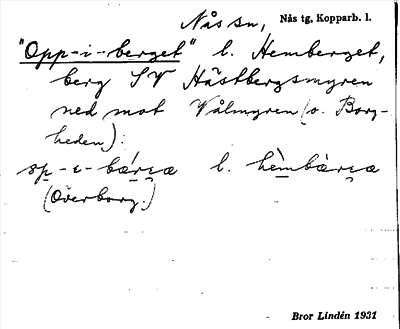 Nås sn, Nås tg, Kopparb. l.
"Opp-i-berget" l. Hemberget,
berg SV Hästbergsmyren
ned mot Vålmyren (o. Borg-
heden):
l.
(Överborg.)
Bror Lindén 1931